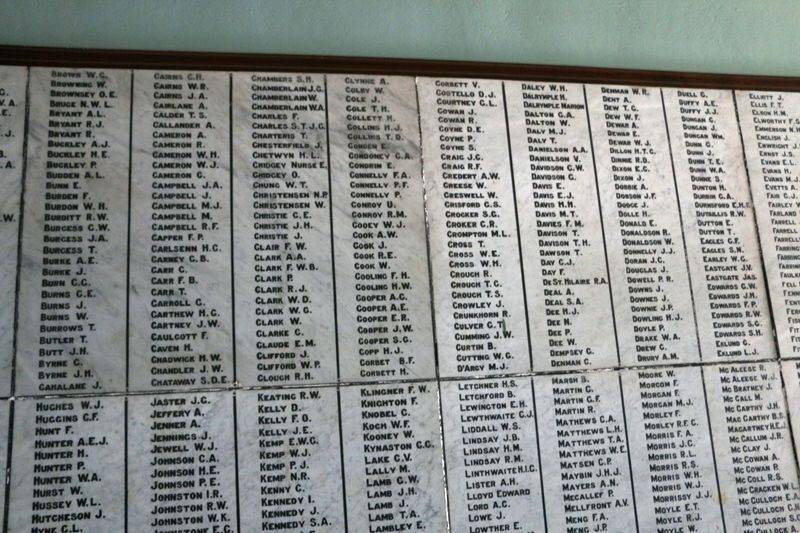 BROWN W.C.
BROWNING W.
BROWNSEY O.E.
BRUCE N.W.L.
BRYANT A.L.
BRYANT R.J.
BRYANT R.
BUCKLEY A.J.
BUCKLEY H.E.
BUCKLEY P.
BUDDEN A.L.
BUNN E.
BURDEN F.
BURDON W.H.
BURDITT R.W.
BURGESS C.W.
BURGESS J.A.
BURGESS T.
BURKE A.E.
BURKE J.
BURN C.C.
BURNS C.E.
BURNS J.
BURNS W.
BURROWS T.
BUTLER T.
BUTT J.H.
BYRNE C.
BYRNE J.H.
CAHALANE J.
CAIRNS C.H.
CAIRNS W.R.
CAIRNS J.A.
CAIRLANE A.
CALDER T.S.
CALLANDER A.
CAMERON A.
CAMERON R.
CAMERON W.H.
CAMERON W.J.
CAMERON C.
CAMPBELL J.A.
CAMPBELL J.
CAMPBELL M.J.
CAMPBELL M.
CAMPBELL R.F.
CAPPER F.P.
CARLSENN H.C.
CARNEY C.B.
CARR C.
CARR F.B.
CARR T.
CARROLL C.
CARTHEW H.C.
CARTNEY J.W.
CAULCOTT F.
CAVEN H.
CHADWICK H.W.
CHANDLER J.W.
CHATAWAY S.D.E.
CHAMBERS S.H.
CHAMBERLAIN J.C.
CHAMBERLAIN W.
CHAMBERLAIN W.A.
CHARLES F.
CHARLES S.T.J.C.
CHARTERIS T.
CHESTERFIELD J.
CHETWYN H.L.
CHIDGEY NURSE E.
CHIDGEY O.
CHUNG W.T.
CHRISTENSEN N.P.
CHRISTENSEN W.
CHRISTIE C.E.
CHRISTIE J.H.
CHRISTIE J.
CLAIR F.W.
CLARK A.A.
CLARK F.W.B.
CLARK P.
CLARK R.J.
CLARK W.D.
CLARK W.G.
CLARK W.
CLARKE C.
CLAUDE E.M.
CLIFFORD J.
CLIFFORD W.P.
CLOUGH R.H.
CLYNNE A.
COLBY W.
COLE J.
COLE T.H.
COLLETT H.
COLLINS H.J.
COLLINS T.D.
CONDEN E.
CONDONEY C.A.
CONDRIN E.
CONNELLY F.A.
CONNELLY P.F.
CONNELLY P.
CONROY U.
CONROY R.M.
COOEY W.J.
COOK A.W.
COOK J.
COOK R.E.
COOK W.
COOLING F.H.
COOLING H.W.
COOPER A.C.
COOPER A.E.
COOPER E.R.
COOPER J.W.
COOPER S.G.
COPP H.J.
CORBET B.F.
CORBETT H.
CORBETT V.
COSTELLO D.J.
COURTNEY C.L.
COWAN J.
COWAN R.
COYIE D.E.
COYNE P.
COYNE S.
CRAIG J.C.
CRAIG R.F.
CREDERT A.W.
CREESE W.
CRESWELL W.
CRISFORD C.S.
CROCKER S.C.
CROKER C.R.
CROMPTON M.L.
CROSS T.
CROSS W.E.
CROSS W.H.
CROUCH R.
CROUCH T.C.
CROUCH T.S.
CROWLEY J.
CRUNKHORN R.
CULVER C.T.
CUMMING J.W.
CURTIN B.
CUTTING W.G.
D'ARCY M.J.
DALEY W.H.
DALRYMPLE H.
DALRYMPLE MARION
DALTON C.A.
DALTON W.
DALY M.J.
DALY T.
DANIELSON A.A.
DANIELSON V.
DAVIDSON C.W.
DAVIDSON G.
DAVIS E.
DAVIS E.J.
DAVIS H.H.
DAVIS M.T.
DAVIES F.M.
DAVISON T.
DAVISON T.H.
DAWSON T.
DAY C.J.
DAY F.
DE ST. HILAIRE R.A.
DEAL A.
DEAL S.A.
DEE H.J.
DEE N.
DEE P.
DEE W.
DEMPSEY C.
DENMAN C.
DENMAN W.R.
DENT A.
DEW T.C.
DEW W.F.
DEWAR A.
DEWAR E.
DEWAR W.J.
DILLON H.T.C.
DINNIE R.D.
DIXON E.C.
DIXON J.
DOBBIE A.
DOBSON J.F.
DODGE J.
DOLLE H.
DONALD E.
DONALDSON R.
DONALDSON W.
DONNELLY J.J.
DORAN J.C.
DOUGLAS J.
DOWELL P.R.
DOWNS J.
DOWNES J.
DOWNIE J.P.
DOWLING H.J.
DOYLE P.
DRAKE W.A.
DREW C.
DRURY A.M.
DUELL G.
DUFFY A.E.
DUFFY J.J.
DUNCAN C.
DUNCAN J.
DUNCAN WM.
DUNN C.
DUNN J.
DUNN T.E.
DUNN W.A.
DUNNE S.
DUNTON H.
DURBIN C.A.
DURNSFORD E.H.F.
DUTAILLIS R.W.
DUTTON E.
DUTTON T.
EAGLES C.F.
EAGLES S.N.
EARLEY W.C.
EASTGATE J.V.
EASTGATE JAS.
EDWARDS C.W.
EDWARDS J.H.
EDWARDS F.P.
EDWARDS R.W.
EDWARDS S.C.
EDWARDS S.H.
EKLUND C.
EKLUND L.J.
ELLIOTT J.
ELLIS F.T.
HUGHES W.J.
HUGGINS C.F.
HUNT F.
HUNTER A.E.J.
HUNTER H.
HUNTER P.
HUNTER W.A.
HURST W.
HUSSEY W.L.
HUTCHESON J.
HYNE C.L.
JASTER J.C.
JEFFERY A.
JENNER A.
JENNINGS J.
JEWELL W.J.
JOHNSON C.A.
JOHNSON H.E.
JOHNSON P.E.
JOHNSTON I.R.
JOHNSTON R.W.
JOHNSTON W.K.
KEATING R.W.
KELLY D.
KELLY F.O.
KELLY J.E.
KEMP E.W.C.
KEMP W.J.
KEMP P.J.
KEMP N.R.
KENNY C.
KENNEDY I.
KENNEDY J.
KENNEDY S.A.
KLINGNER F.W.
KNIGHTON F.
KNOBEL C.
KOCH W.F.
KOONEY W.
KYNASTON C.C.
LAKE C.V.
LALLY M.
LAMB C.W.
LAMB J.H.
LAMB J.
LAMB T.A.
LAMBLEY E.
LETCHNER H.S.
LETCHFORD B.
LEWINGTON E.H.
LEWTHWAITE C.J.
LIDDALL W.S.
LINDSAY J.B.
LINDSAY H.M.
LINDSAY R.M.
LINTHWAITE H.I.C.
LISTER A.H.
LLOYD EDWARD
LORD A.C.
LOWE J.
LOWTHER E.
MARSH B.
MARTIN C.
MARTIN C.F.
MARTIN R.
MATHEWS C.A.
MATTHEWS L.H.
MATTHEWS T.A.
MATTHEWS W.E.
MATSEN C.P.
MAYBIN J.H.J.
MAYERS A.N.
MECALLEF P.
MELLEFRONT A.V.
MENG F.A.
MENG J.P.
MOORE W.
MORCOM F.
MORGAN F.
MORGAN M.J.
MORLEY F.
MORLEY R.F.C.
MORRIS F.A.
MORRIS J.C.
MORRIS R.L.
MORRIS R.S.
MORRIS W.H.
MORRIS W.J.
MORRISSY J.J.
MOYLE E.T.
MOYLE R.J.
MC ALEESE R.
MC ALEESE W.J.
MC BRATNEY J.
MC CALL M.
MC CARTHY J.H.
MAC CARTHY B.F.
MACARTNEY H.E.J.
MC CALLUM J.R.
MC CLAY J.
MC COWAN A.
MC COWAN P.
MC COLL R.S.
MC CRACKEN W.L.